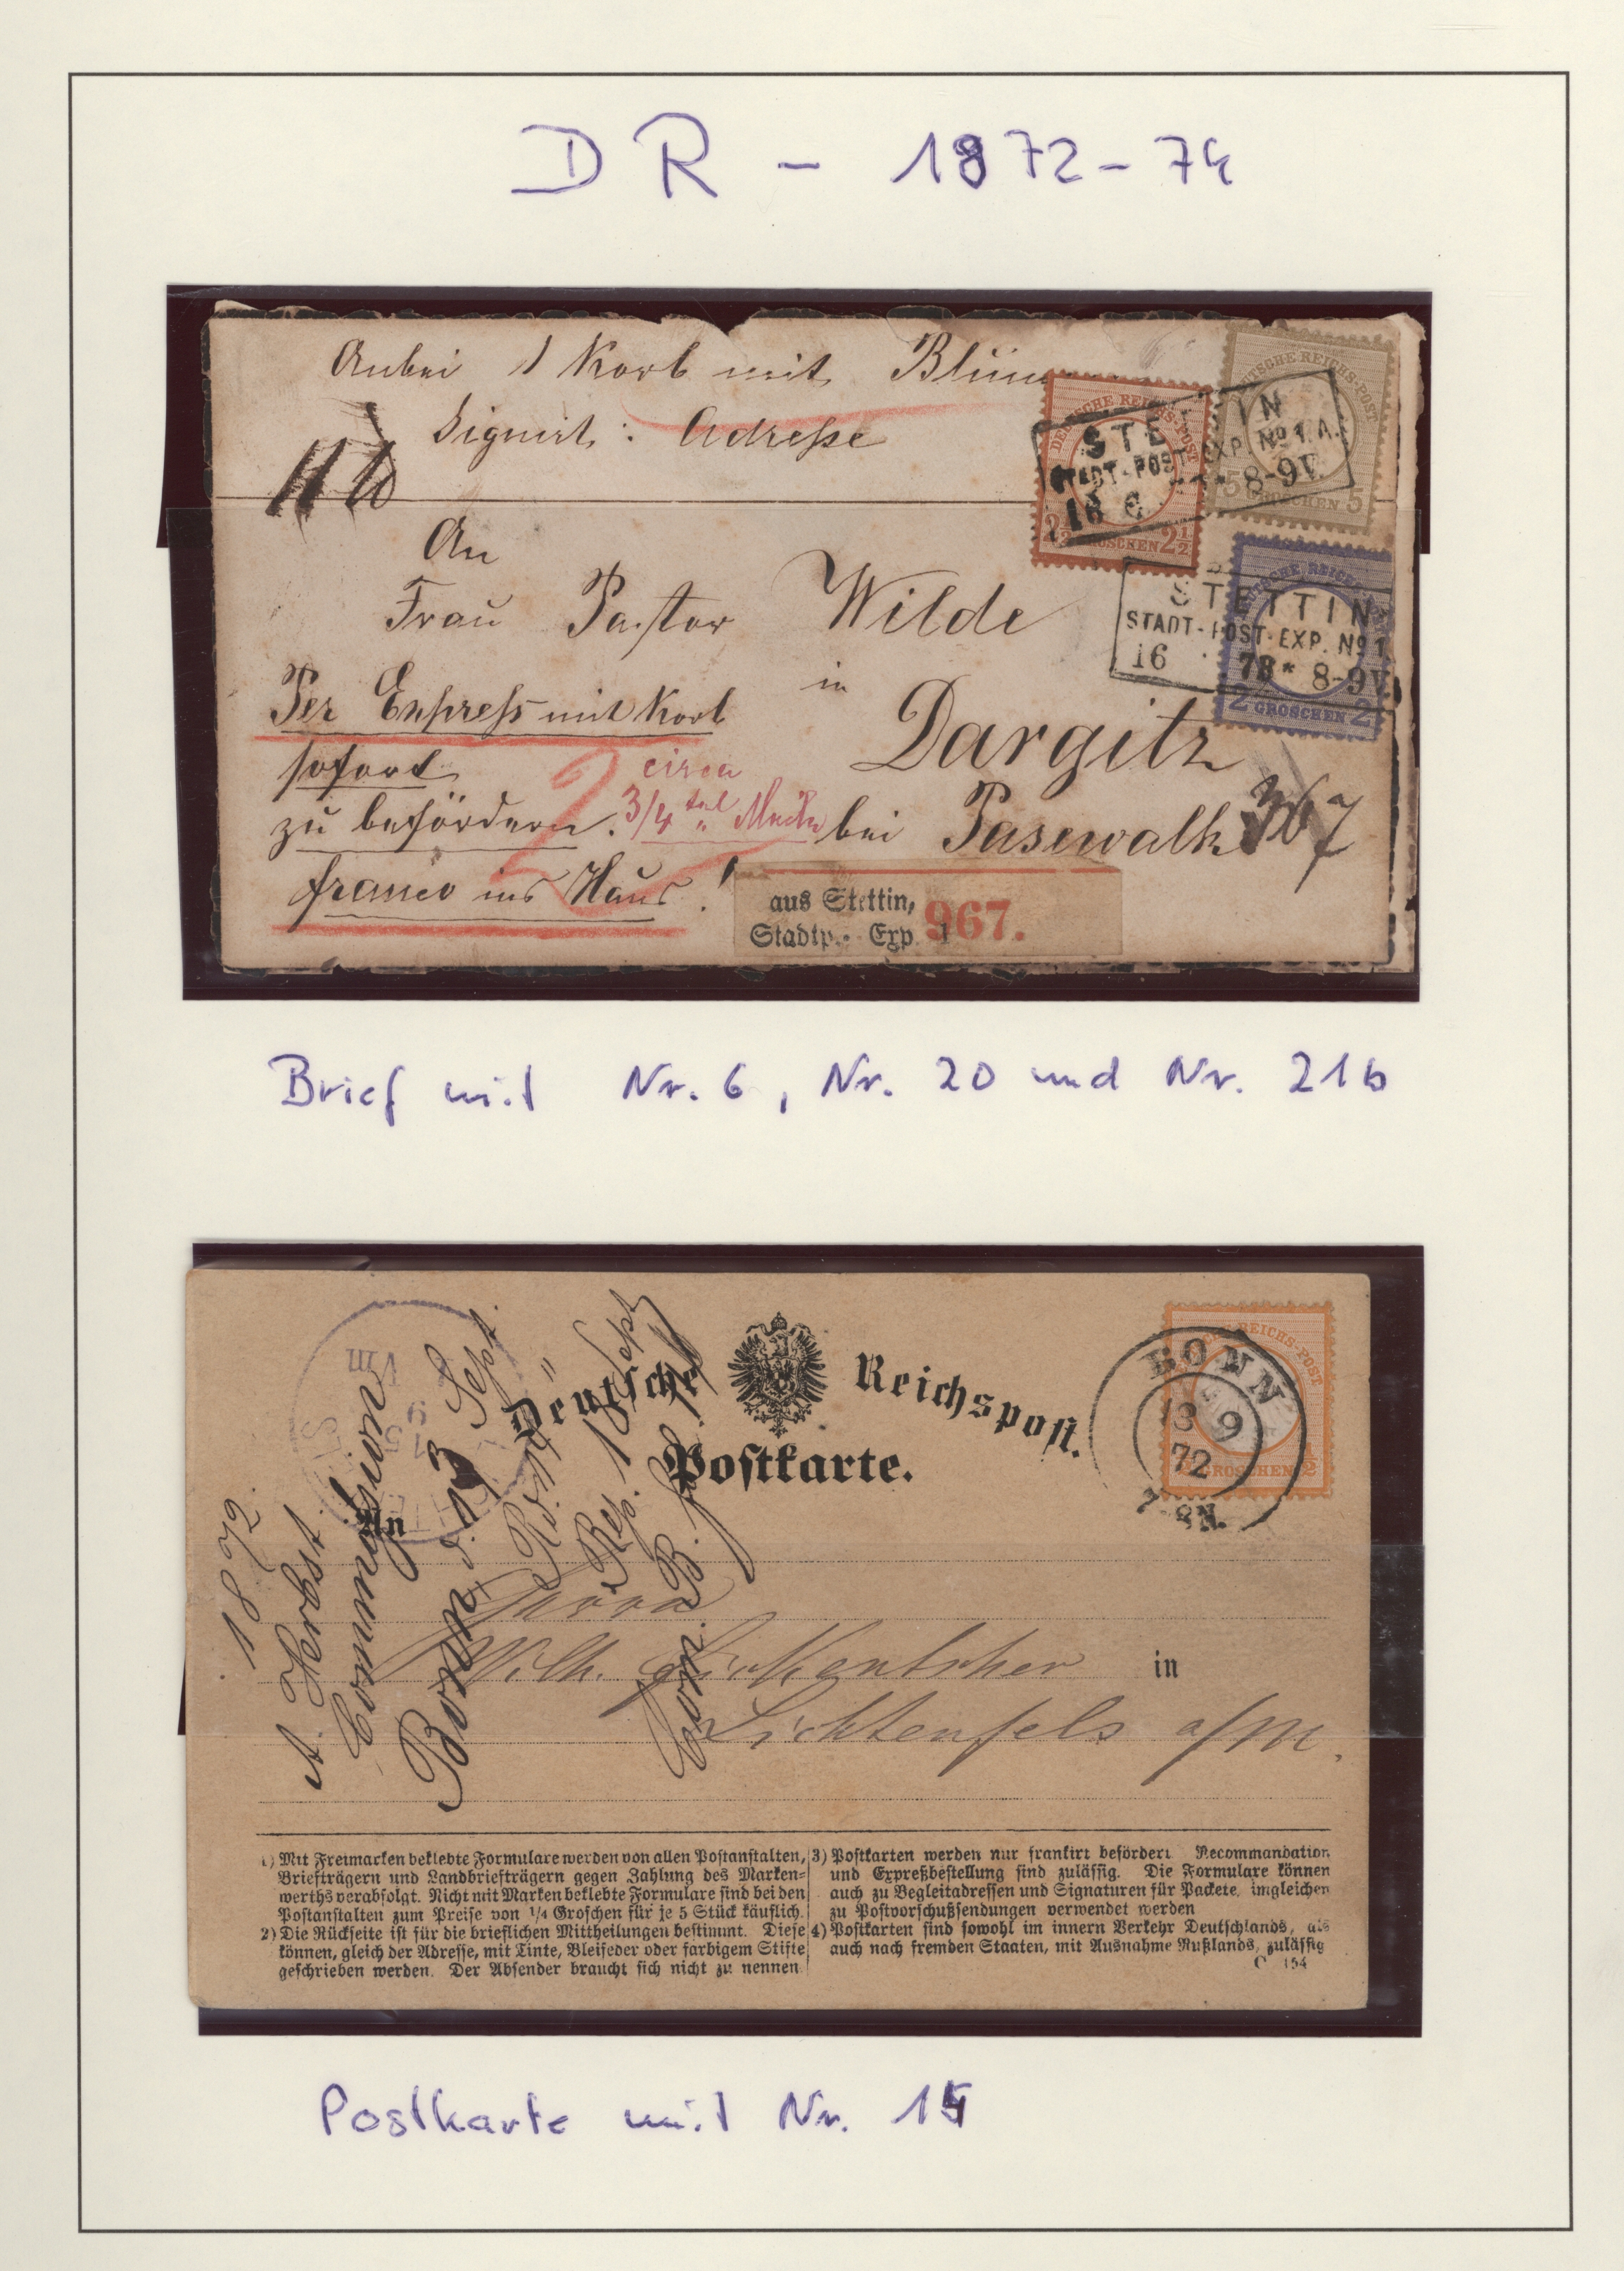 DR - 1872-74
Anbei 1 Korb mit
Signirt: Adresse
DEUTSCHE REICHS-POST
2½ GROSCHEN 2½
DEUTSCHE REICHS-POST
5 GROSCHEN 5
STETTIN
STADT-POST-EXP. No 1 A.
16 8-9V.
An
Frau Pastor Wilde
in
Dargitz
bei Pasewalk
367
STETTIN
STADT-POST-EXP. No 1
16 73* 8-9V
2 GROSCHEN 2
Per Expreß mit Korb
sofort
zu befördern.
franco ins Haus!
2
circa
3/4
aus Stettin,
Stadtp.- Exp. 1
967.
Brief mit Nr. 6, Nr. 20 und Nr. 21b
Deutsche Reichspost.
Postkarte.
REICHS-POST
GROSCHEN ½
BONN
13 9
72
7-8N.
An
Herrn
Wilh.
in
Lichtenfels a/M.
1872.
A. Herbst
Commission
Bonn d. 13 Sept.
1) Mit Freimarken beklebte Formulare werden von allen Postanstalten,
Briefträgern und Landbriefträgern gegen Zahlung des Marken-
werths verabfolgt. Nicht mit Marken beklebte Formulare sind bei den
Postanstalten zum Preise von 1/4 Groschen für je 5 Stück käuflich.
2) Die Rückseite ist für die brieflichen Mittheilungen bestimmt. Diese
können, gleich der Adresse, mit Tinte, Bleifeder oder farbigem Stifte
geschrieben werden. Der Absender braucht sich nicht zu nennen.
3) Postkarten werden nur frankirt befördert. Recommandation
und Expreßbestellung sind zulässig. Die Formulare können
auch zu Begleitadressen und Signaturen für Packete, imgleichen
zu Postvorschußsendungen verwendet werden
4) Postkarten sind sowohl im innern Verkehr Deutschlands, als
auch nach fremden Staaten, mit Ausnahme Rußlands, zulässig
C 154
Postkarte mit Nr.